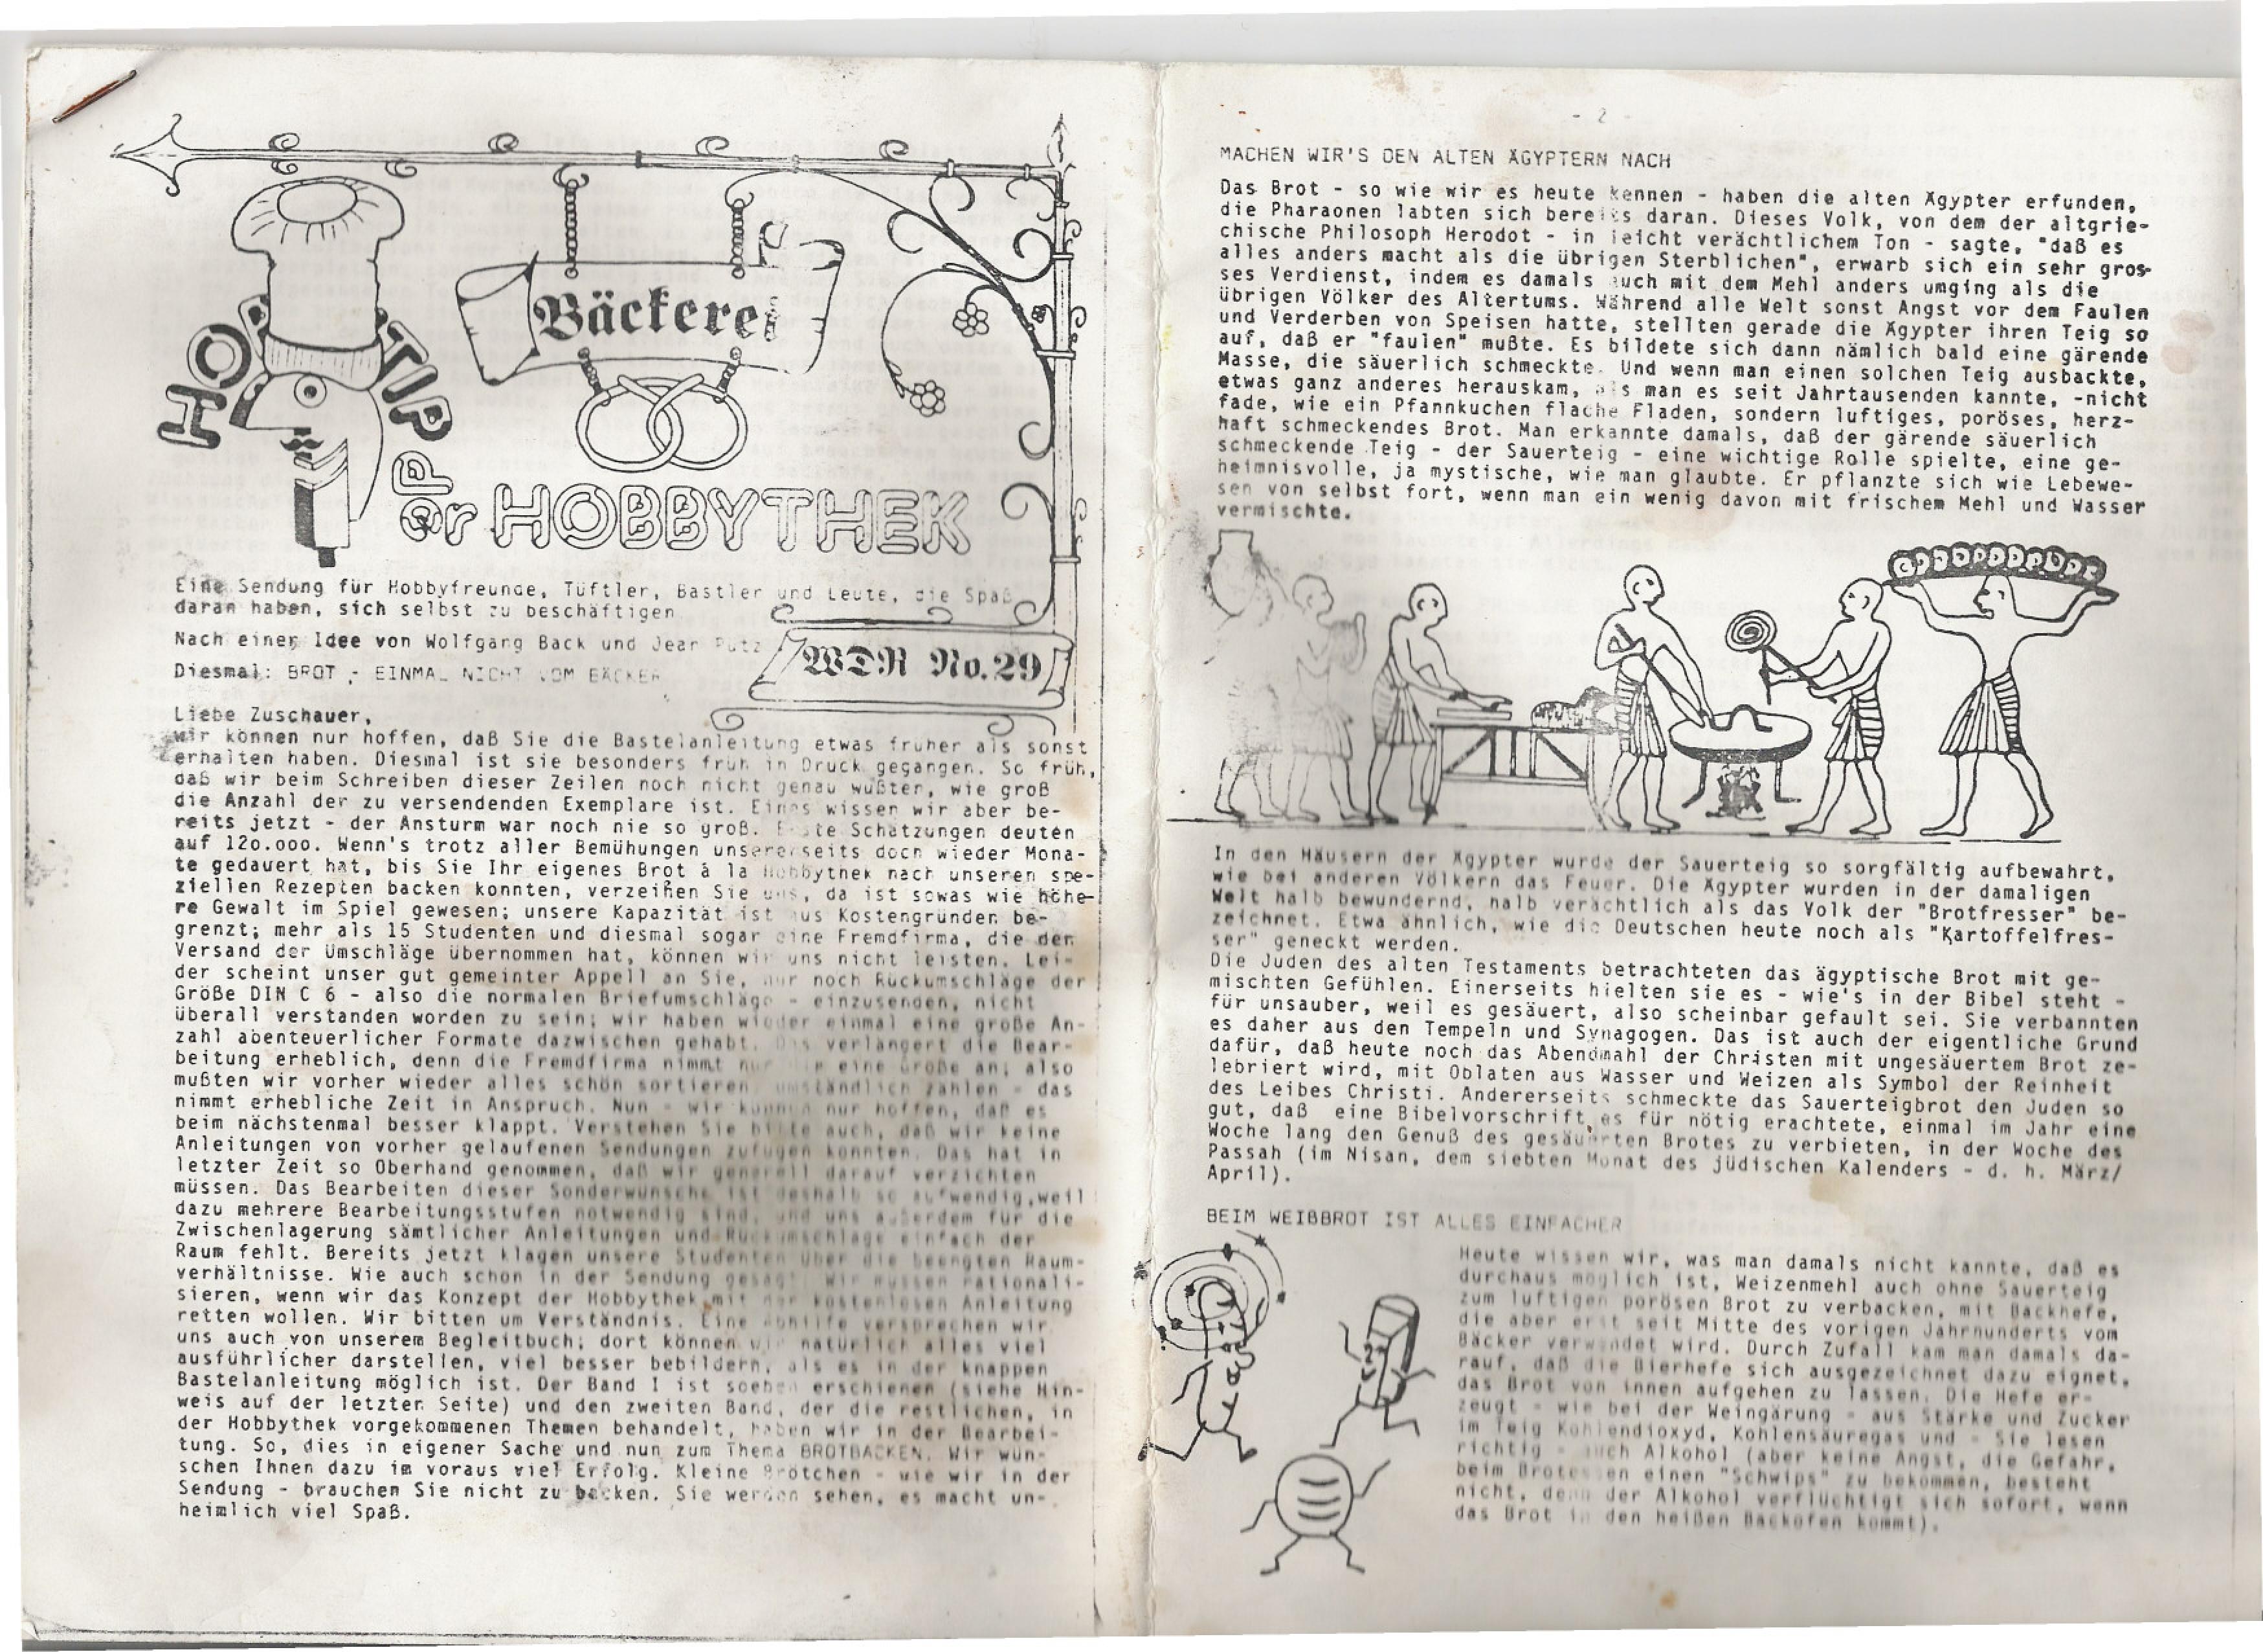 HO
TIP
Bäckerei
der HOBBYTHEK
Eine Sendung für Hobbyfreunde, Tüftler, Bastler und Leute, die Spaß
daran haben, sich selbst zu beschäftigen
Nach einer Idee von Wolfgang Back und Jean Pütz
WDR No.29
Diesmal: BROT - EINMAL NICHT VOM BÄCKER
Liebe Zuschauer,
wir können nur hoffen, daß Sie die Bastelanleitung etwas früher als sonst
erhalten haben. Diesmal ist sie besonders früh in Druck gegangen. So früh,
daß wir beim Schreiben dieser Zeilen noch nicht genau wußten, wie groß
die Anzahl der zu versendenden Exemplare ist. Eines wissen wir aber be-
reits jetzt - der Ansturm war noch nie so groß. Erste Schätzungen deuten
auf 12o.ooo. Wenn's trotz aller Bemühungen unsererseits doch wieder Mona-
te gedauert hat, bis Sie Ihr eigenes Brot à la Hobbythek nach unseren spe-
ziellen Rezepten backen konnten, verzeihen Sie uns, da ist sowas wie höhe-
re Gewalt im Spiel gewesen; unsere Kapazität ist aus Kostengründen be-
grenzt; mehr als 15 Studenten und diesmal sogar eine Fremdfirma, die den
Versand der Umschläge übernommen hat, können wir uns nicht leisten. Lei-
der scheint unser gut gemeinter Appell an Sie, nur noch Rückumschläge der
Größe DIN C 6 - also die normalen Briefumschläge - einzusenden, nicht
überall verstanden worden zu sein; wir haben wieder einmal eine große An-
zahl abenteuerlicher Formate dazwischen gehabt. Das verlängert die Bear-
beitung erheblich, denn die Fremdfirma nimmt nur die eine Größe an; also
mußten wir vorher wieder alles schön sortieren, umständlich zählen - das
nimmt erhebliche Zeit in Anspruch. Nun - wir können nur hoffen, daß es
beim nächstenmal besser klappt. Verstehen Sie bitte auch, daß wir keine
Anleitungen von vorher gelaufenen Sendungen zufügen konnten. Das hat in
letzter Zeit so Oberhand genommen, daß wir generell darauf verzichten
müssen. Das Bearbeiten dieser Sonderwünsche ist deshalb so aufwendig,weil
dazu mehrere Bearbeitungsstufen notwendig sind, und uns außerdem für die
Zwischenlagerung sämtlicher Anleitungen und Rückumschläge einfach der
Raum fehlt. Bereits jetzt klagen unsere Studenten über die beengten Raum-
verhältnisse. Wie auch schon in der Sendung gesagt: Wir müssen rationali-
sieren, wenn wir das Konzept der Hobbythek mit der kostenlosen Anleitung
retten wollen. Wir bitten um Verständnis. Eine Abhilfe versprechen wir
uns auch von unserem Begleitbuch; dort können wir natürlich alles viel
ausführlicher darstellen, viel besser bebildern, als es in der knappen
Bastelanleitung möglich ist. Der Band I ist soeben erschienen (siehe Hin-
weis auf der letzten Seite) und den zweiten Band, der die restlichen, in
der Hobbythek vorgekommenen Themen behandelt, haben wir in der Bearbei-
tung. So, dies in eigener Sache und nun zum Thema BROTBACKEN. Wir wün-
schen Ihnen dazu im voraus viel Erfolg. Kleine Brötchen - wie wir in der
Sendung - brauchen Sie nicht zu backen. Sie werden sehen, es macht un-
heimlich viel Spaß.
- 2 -
MACHEN WIR'S DEN ALTEN ÄGYPTERN NACH
Das Brot - so wie wir es heute kennen - haben die alten Ägypter erfunden,
die Pharaonen labten sich bereits daran. Dieses Volk, von dem der altgrie-
chische Philosoph Herodot - in leicht verächtlichem Ton - sagte, "daß es
alles anders macht als die übrigen Sterblichen", erwarb sich ein sehr gros-
ses Verdienst, indem es damals auch mit dem Mehl anders umging als die
übrigen Völker des Altertums. Während alle Welt sonst Angst vor dem Faulen
und Verderben von Speisen hatte, stellten gerade die Ägypter ihren Teig so
auf, daß er "faulen" mußte. Es bildete sich dann nämlich bald eine gärende
Masse, die säuerlich schmeckte. Und wenn man einen solchen Teig ausbackte,
etwas ganz anderes herauskam, als man es seit Jahrtausenden kannte, -nicht
fade, wie ein Pfannkuchen flache Fladen, sondern luftiges, poröses, herz-
haft schmeckendes Brot. Man erkannte damals, daß der gärende säuerlich
schmeckende Teig - der Sauerteig - eine wichtige Rolle spielte, eine ge-
heimnisvolle, ja mystische, wie man glaubte. Er pflanzte sich wie Lebewe-
sen von selbst fort, wenn man ein wenig davon mit frischem Mehl und Wasser
vermischte.
In den Häusern der Ägypter wurde der Sauerteig so sorgfältig aufbewahrt,
wie bei anderen Völkern das Feuer. Die Ägypter wurden in der damaligen
Welt halb bewundernd, halb verächtlich als das Volk der "Brotfresser" be-
zeichnet. Etwa ähnlich, wie die Deutschen heute noch als "Kartoffelfres-
ser" geneckt werden.
Die Juden des alten Testaments betrachteten das ägyptische Brot mit ge-
mischten Gefühlen. Einerseits hielten sie es - wie's in der Bibel steht -
für unsauber, weil es gesäuert, also scheinbar gefault sei. Sie verbannten
es daher aus den Tempeln und Synagogen. Das ist auch der eigentliche Grund
dafür, daß heute noch das Abendmahl der Christen mit ungesäuertem Brot ze-
lebriert wird, mit Oblaten aus Wasser und Weizen als Symbol der Reinheit
des Leibes Christi. Andererseits schmeckte das Sauerteigbrot den Juden so
gut, daß eine Bibelvorschrift es für nötig erachtete, einmal im Jahr eine
Woche lang den Genuß des gesäuerten Brotes zu verbieten, in der Woche des
Passah (im Nisan, dem siebten Monat des jüdischen Kalenders - d. h. März/
April).
BEIM WEIßBROT IST ALLES EINFACHER
Heute wissen wir, was man damals nicht kannte, daß es
durchaus möglich ist, Weizenmehl auch ohne Sauerteig
zum luftigen porösen Brot zu verbacken, mit Backhefe,
die aber erst seit Mitte des vorigen Jahrhunderts vom
Bäcker verwendet wird. Durch Zufall kam man damals da-
rauf, daß die Bierhefe sich ausgezeichnet dazu eignet,
das Brot von innen aufgehen zu lassen. Die Hefe er-
zeugt - wie bei der Weingärung - aus Stärke und Zucker
im Teig Kohlendioxyd, Kohlensäuregas und - Sie lesen
richtig - auch Alkohol (aber keine Angst, die Gefahr,
beim Brotessen einen "Schwips" zu bekommen, besteht
nicht, denn der Alkohol verflüchtigt sich sofort, wenn
das Brot in den heißen Backofen kommt).